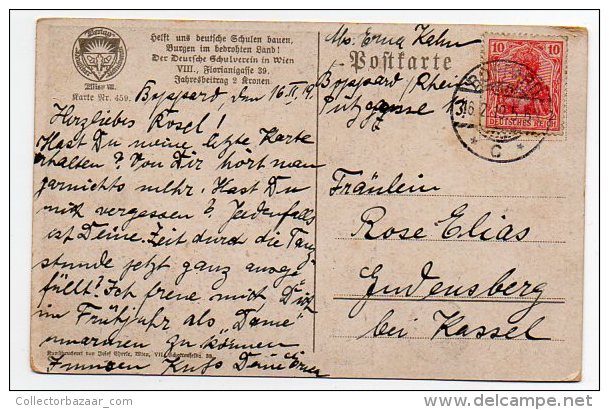 Helft uns deutsche Schulen bauen,
Burgen im bedrohten Land!
Der Deutsche Schulverein in Wien
VIII., Florianigasse 39.
Jahresbeitrag 2 Kronen.
Verlag
Wien VIII.
Karte Nr. 459.
Postkarte
Abs. Erna Kahn
Boppard/Rhein
10 10
DEUTSCHES REICH
C
Boppard, den 16. II.
Herzliebes Rosel!
Hast Du meine letzte Karte
erhalten? Von Dir hört man
garnichts mehr. Hast Du
mich vergessen? Jedenfalls
ist Deine Zeit durch die Tanz-
stunde jetzt ganz ausge-
füllt! Ich freue mich, Dich
im Frühjahr als „Dame"
umarmen zu können
Kuß Deine Erna
Fräulein
Rose Elias
Gudensberg
bei Kassel
Kunstdruckerei von Josef Eberle, Wien, VII. Schottenfeldg. 38.
Collectorbazaar_com
CollectorBazaar.com / delcampe.net